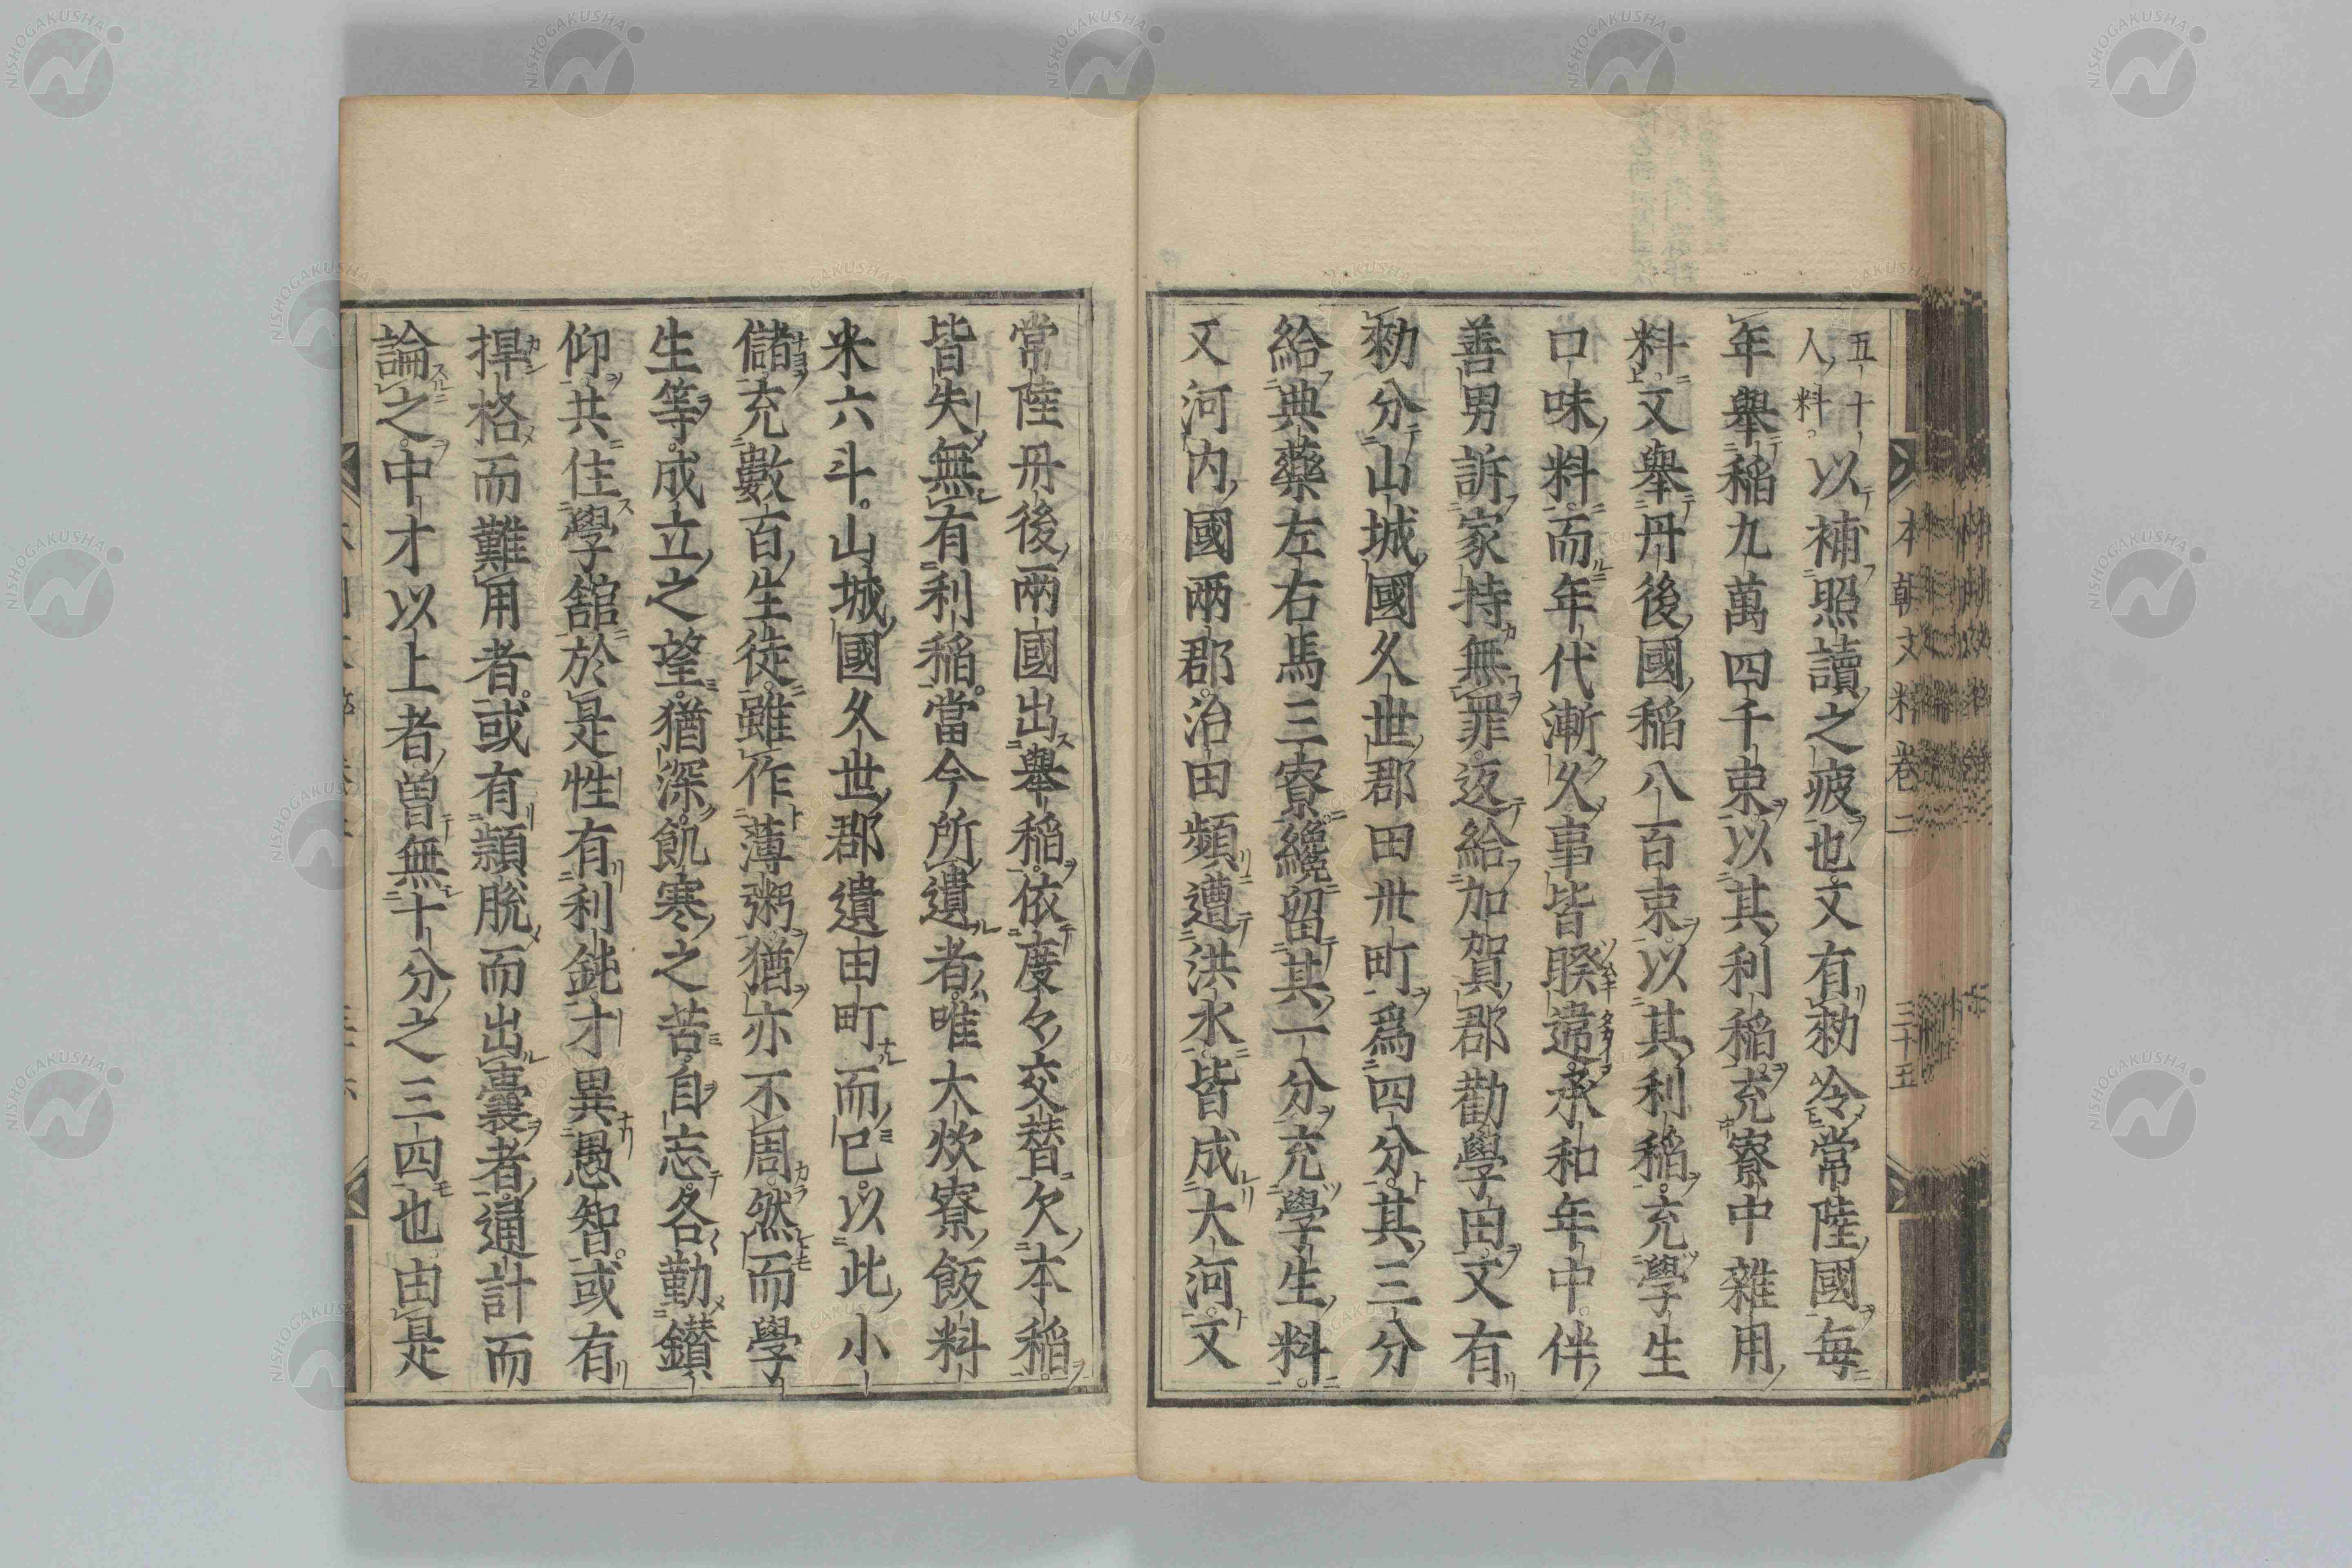 五十人料。以補照讀之疲也。又有勅冷常陸國每
年舉稻九萬四千束。以其利稻充寮中雜用
料。又舉丹後國稻八百束。以其利稻。充學生
口味料。而年代漸久。事皆睽違。承和年中。伴
善男訴家持無罪。返給加賀郡勸學田。又有
勅分山城國久世郡田卅町。爲四分。其三分
給典藥左右馬三寮。纔留其一分。充學生料。
又河內國兩郡。治田頻遭洪水。皆成大河。又
常陸丹後兩國出舉稻。依度々交替欠本稻。
皆失無有利稻。當今所遺者。唯大炊寮飯料
米六斗。山城國久世郡遺田町而已。以此小
儲。充數百生徒。雖作薄粥。猶亦不周。然而學
生等。成立之望。猶深。飢寒之苦。自忘。各勤鑚
仰。共住學館。於是性有利鈍。才異愚智。或有
捍格而難用者。或有穎脫而出囊者。通計而
論之。中才以上者。曾無十分之三四也。由是
本朝文粹卷二
三十五
NISHOGAKUSHA